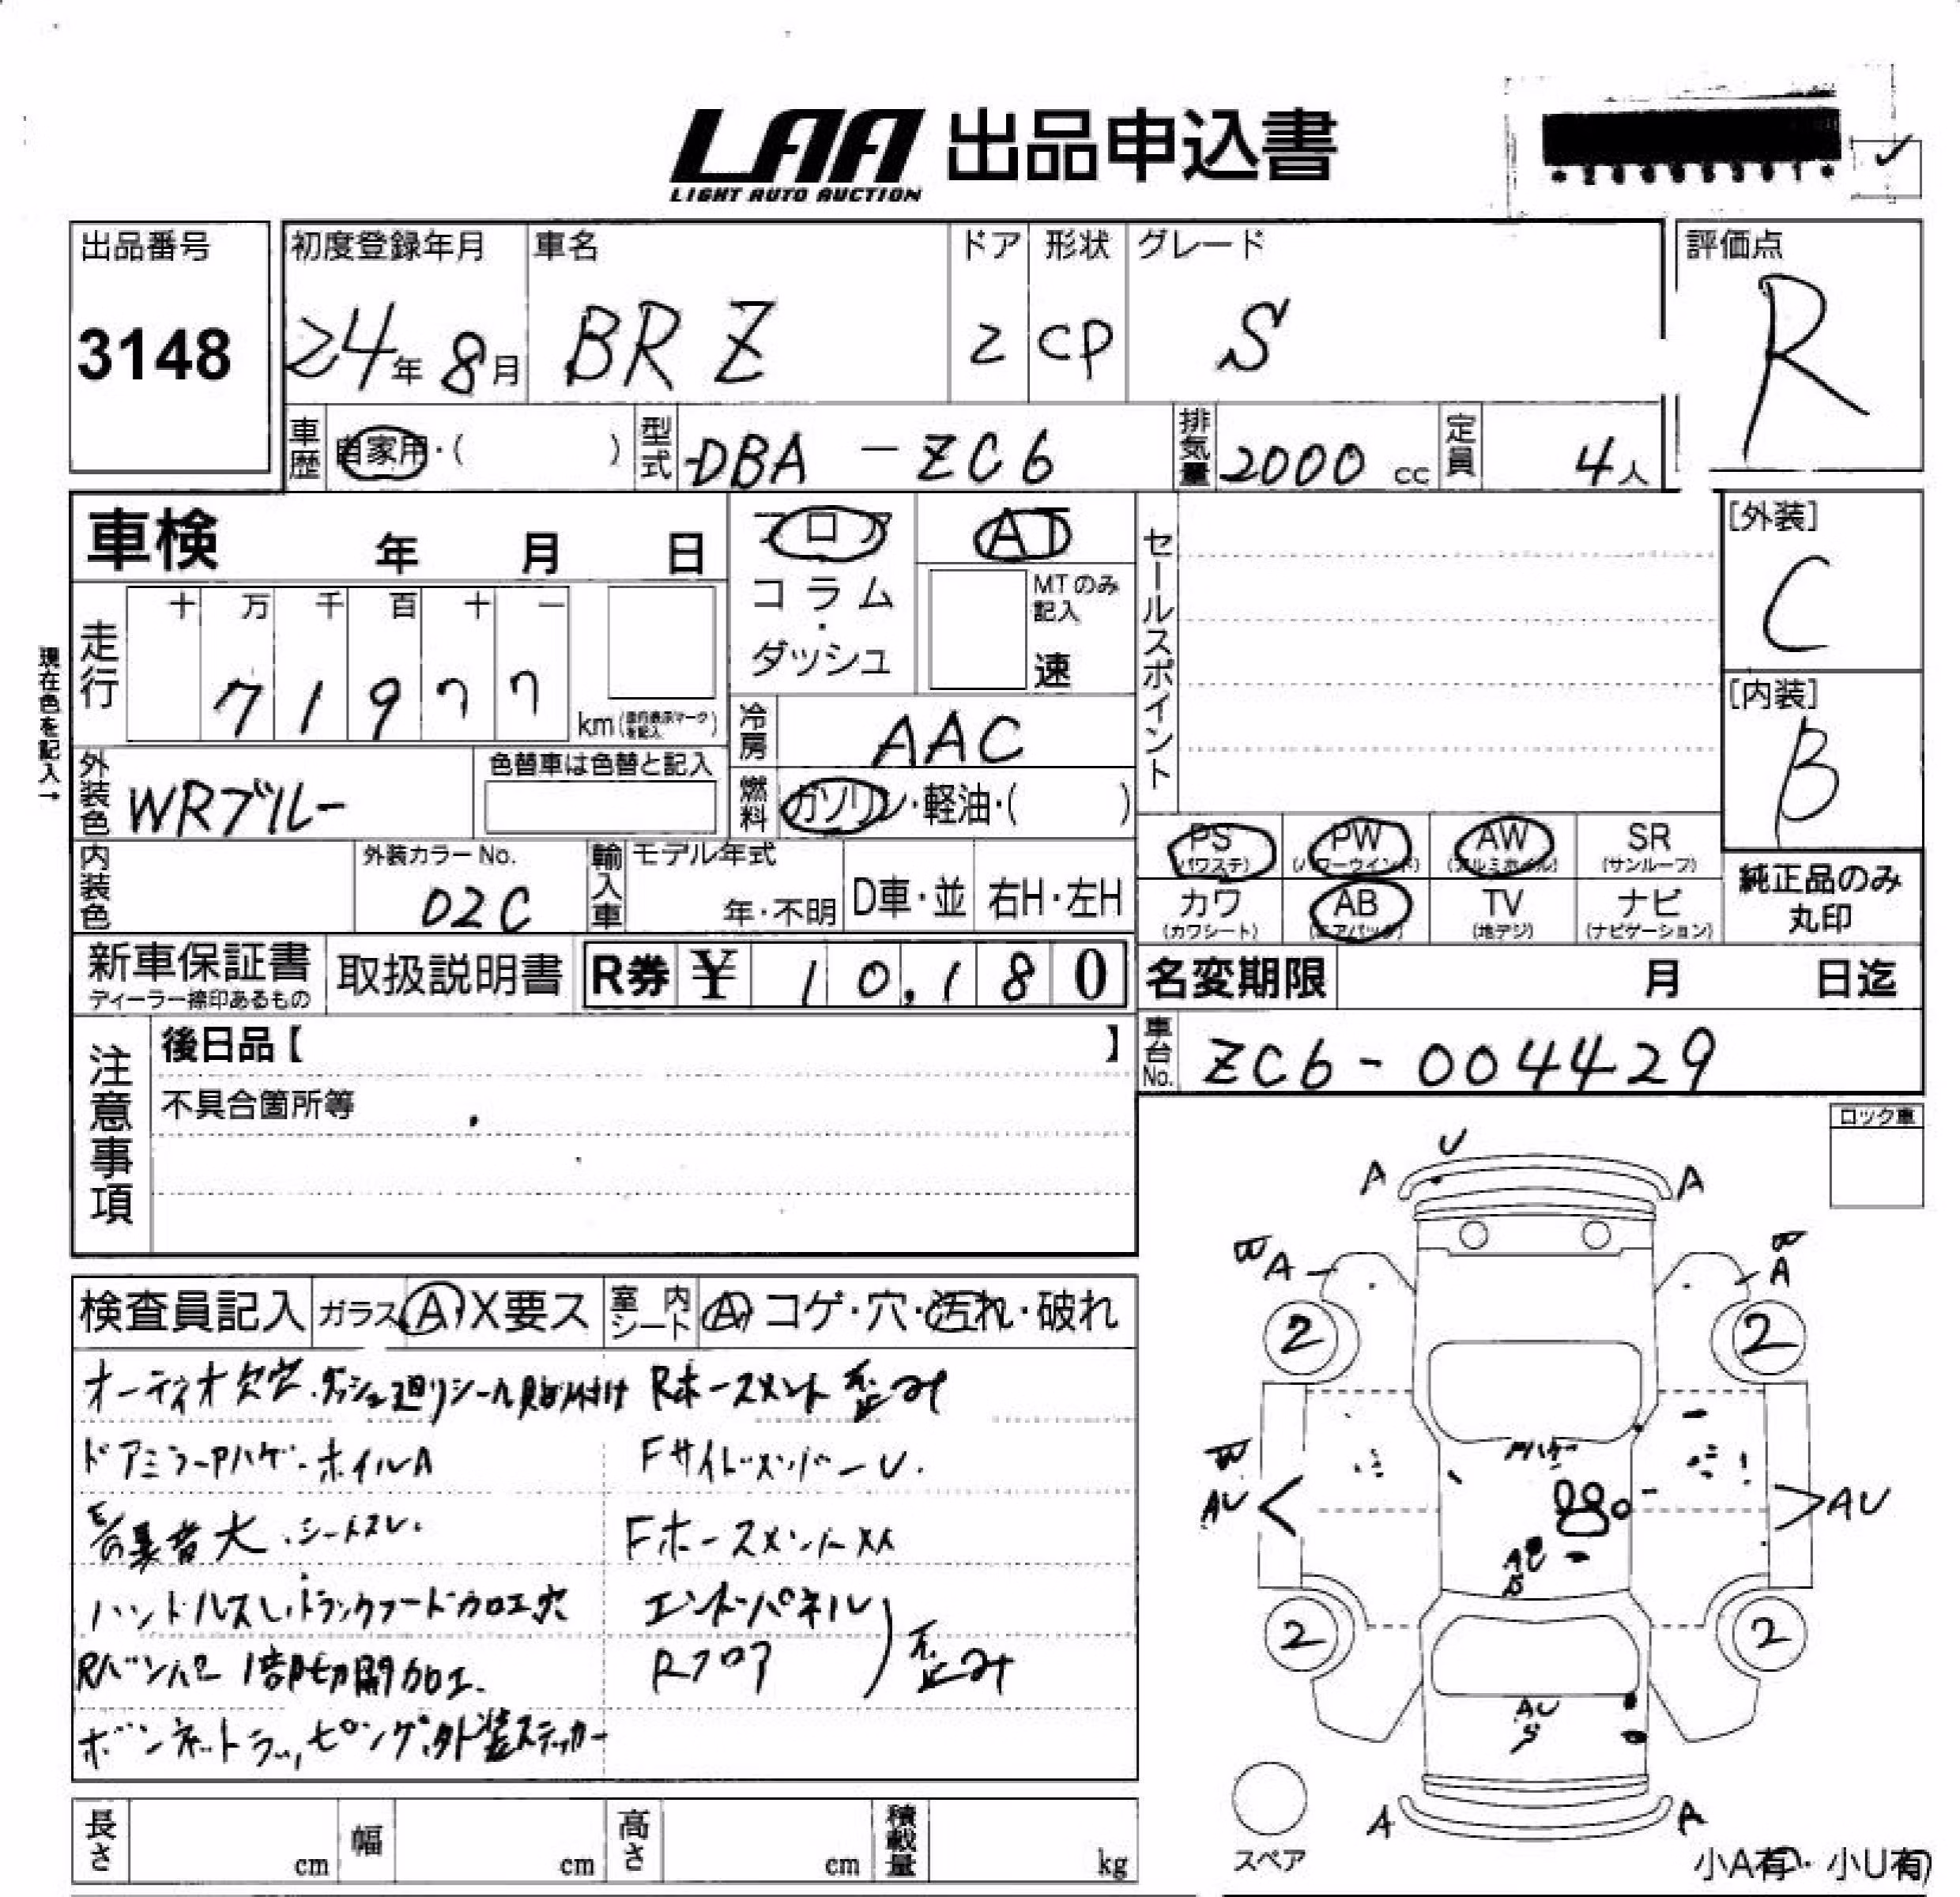 LAA 出品申込書
LIGHT AUTO AUCTION
出品番号
3148
初度登録年月 車名 ドア 形状 グレード 評価点
24年 8月 BRZ 2 CP S R
車歴 自家用・( ) 型式 DBA-ZC6 排気量 2000 cc 定員 4人
車検 年 月 日
フロア
コラム
・
ダッシュ
AT
MTのみ記入
速
セールスポイント
[外装]
C
[内装]
B
走行 十 万 千 百 十 一
7 1 9 7 7 km
現在色を記入→
冷房 AAC
外装色 WRブルー 色替車は色替と記入
燃料 ガソリン・軽油・( )
内装色 外装カラーNo. 02C
輸入車 モデル年式 年・不明 D車・並 右H・左H
PS (パワステ) PW (パワーウインド) AW (アルミホイル) SR (サンルーフ)
カワ (カワシート) AB (エアバック) TV (地デジ) ナビ (ナビゲーション)
純正品のみ
丸印
新車保証書 ディーラー捺印あるもの 取扱説明書 R券 ¥ 10,180
名変期限 月 日迄
車台No. ZC6-004429
注意事項
後日品【 】
不具合箇所等
ロック車
検査員記入 ガラス A X要ス 室内シート A コゲ・穴・汚れ・破れ
オーディオ欠穴.ダッシュ廻りシール貼付け Rホースメント歪み
ドアミラーPハゲ・ホイルA FサイドメンバーU.
大.シートスレ. FホースメントXX
ハンドルスレ.トランクフード加工穴 エンドパネル
Rバンパ 1部切開加工. Rフロア 歪み
ボンネットラッピング.外装ステッカー
U
A A
A A
2 2
AU AU
2 2
AU
S
A A
スペア
小A有・小U有
長さ cm 幅 cm 高さ cm 積載量 kg